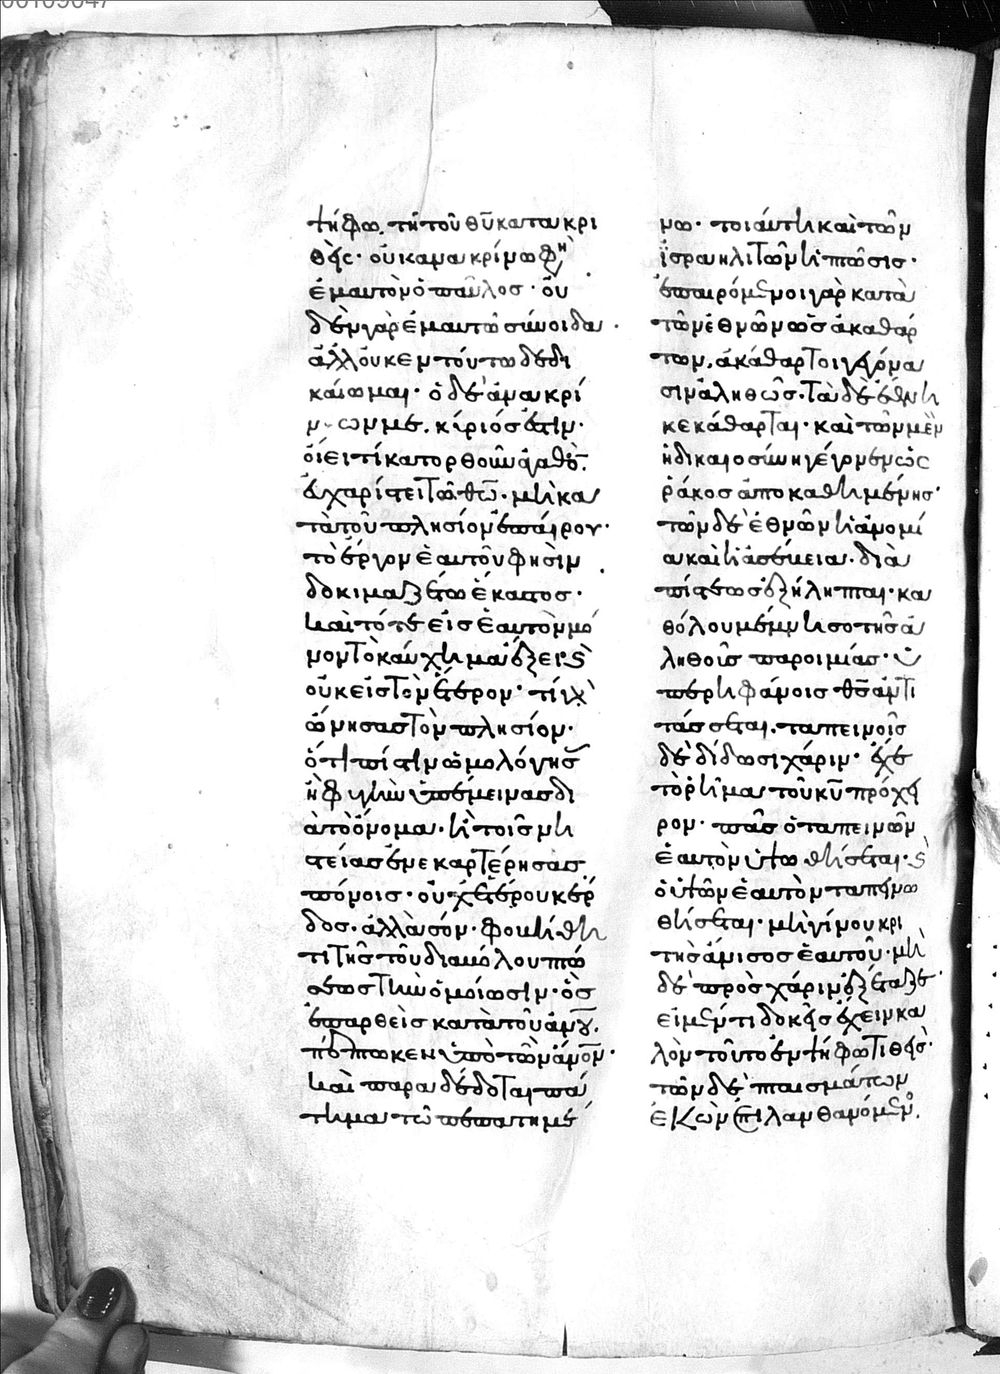 τήφω. τῇ τοῦ θῦ κατακρι
θῇς· οὐκ ἀνακρίνω φη
ἐμαυτὸν ὁ παῦλος· οὐ
δὲν γὰρ ἐμαυτῶ σύνοιδα·
ἀλλ' οὐκ ἐν τούτω δεδι
καίωμαι· ὁ δὲ ἀνακρί
νων με, κύριός ἐστιν·
οἴει τί κατορθοῦν ἀγαθόν·
εὐχαρίστει τῶ θῶ· μὴ κα
τὰ τοῦ πλησίον ἐπαίρου·
τὸ ἔργον ἑαυτοῦ φησὶν
δοκιμαζέτω ἕκαστος·
καὶ τότε εἰς ἑαυτὸν μό
νον τὸ καύχημα ἕξει· καὶ
οὐκ εἰς τὸν ἕτερον· τί γὰρ
ὤνησας τὸν πλησίον·
ὅτι πίστιν ὡμολόγησας
ἢ φυγὴν ὑπέμεινας δι
ὰ τὸ ὄνομα· ἢ τοῖς νη
στείας ἐνεκαρτέρησας
πόνοις· οὐχ ἑτέρου κέρ
δος· ἀλλὰ σόν· φοβήθη
τι τῆς τοῦ διαβόλου πτώ
σεως τὴν ὁμοίωσιν· ὃς
ἐπαρθεὶς κατὰ τοῦ ἀνου,
πέπτωκεν ὑπὸ τῶν ἀνον·
καὶ παραδέδοται πά
τημα τῶ πεπατημέ
νω· τοιαύτη καὶ τῶν
ἰσραηλιτῶν ἡ πτῶσις·
ἐπαιρόμενοι γὰρ κατὰ
τῶν ἐθνῶν ὡς ἀκαθάρ
των, ἀκάθαρτοι γεγόνα
σιν ἀληθῶς· τὰ δὲ ἔθνη
κεκάθαρται· καὶ τῶν μὲν
ἡ δικαιοσύνη γέγονεν ὡς
ῥάκος ἀποκαθημένης·
τῶν δὲ ἐθνῶν ἡ ἀνομί
α καὶ ἡ ἀσέβεια· διὰ
πίστεως ἐξήλειπται· κα
θόλου μέμνησο τῆς ἀ
ληθοῦς παροιμίας· ὑ
περηφάνοις θς ἀντι
τάσσεται, ταπεινοῖς
δὲ δίδωσι χάριν· ἔχε
τὸ ῥῆμα τοῦ κυ πρόχει
ρον· πᾶς ὁ ταπεινῶν
ἑαυτὸν ὑψωθήσεται· καὶ
ὁ ὑψῶν ἑαυτὸν ταπεινω
θήσεται· μὴ γίνου κρι
τὴς ἄνισος ἑαυτοῦ· μὴ
δὲ πρὸς χάριν ἐξέταζε·
εἰ μέν τι δοκεῖς ἔχειν κα
λὸν τοῦτο ἐν τῇ ψήφω τιθείς·
τῶν δὲ πταισμάτων
ἑκὼν ἐπιλανθανόμενος.